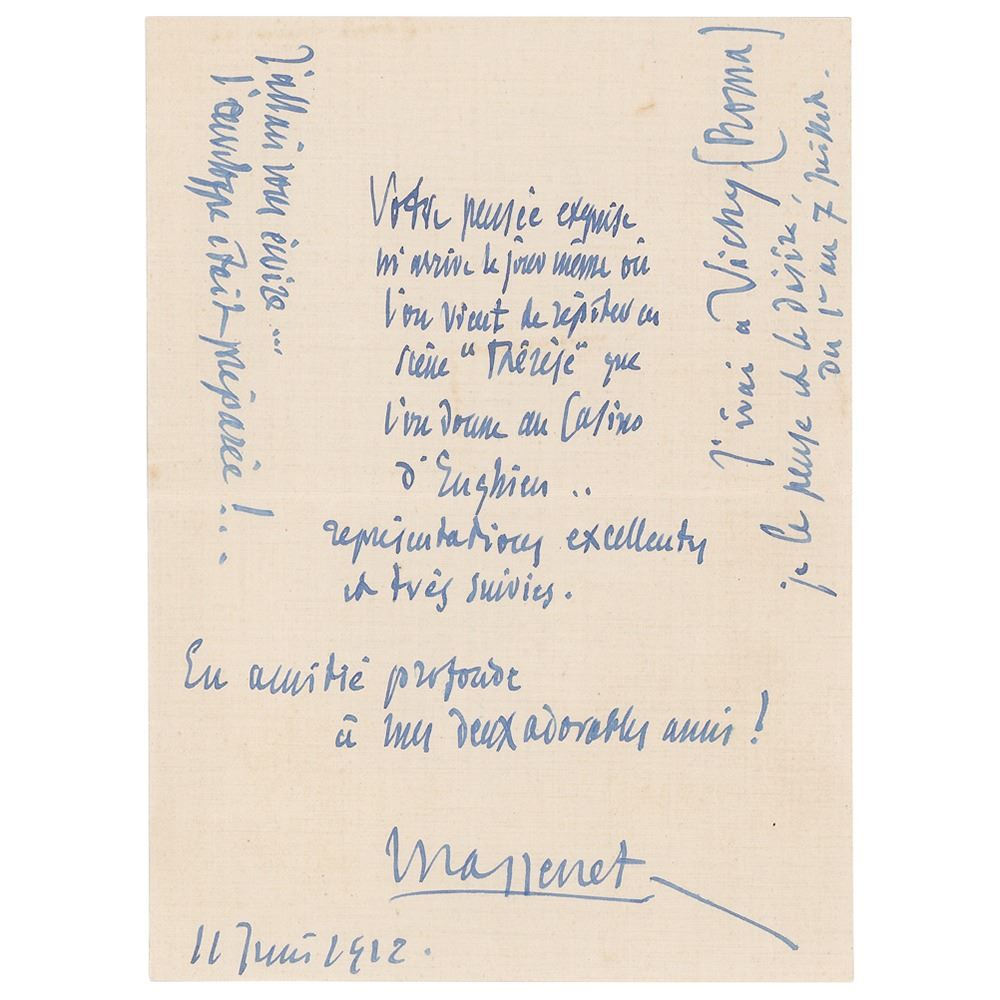 Votre pensée exquise
m'arrive le jour même où
l'on vient de répéter en
scène "Thérèse" que
l'on donne au Casino
d'Enghien ..
représentations excellentes
et très suivies.
En amitié profonde
à mes deux adorables amis !
Massenet
11 Juin 1912.
J'allais vous écrire ...
l'enveloppe était préparée ! ...
J'irai à Vichy (Roma)
je le pense et le désire,
du 1er au 7 juillet.